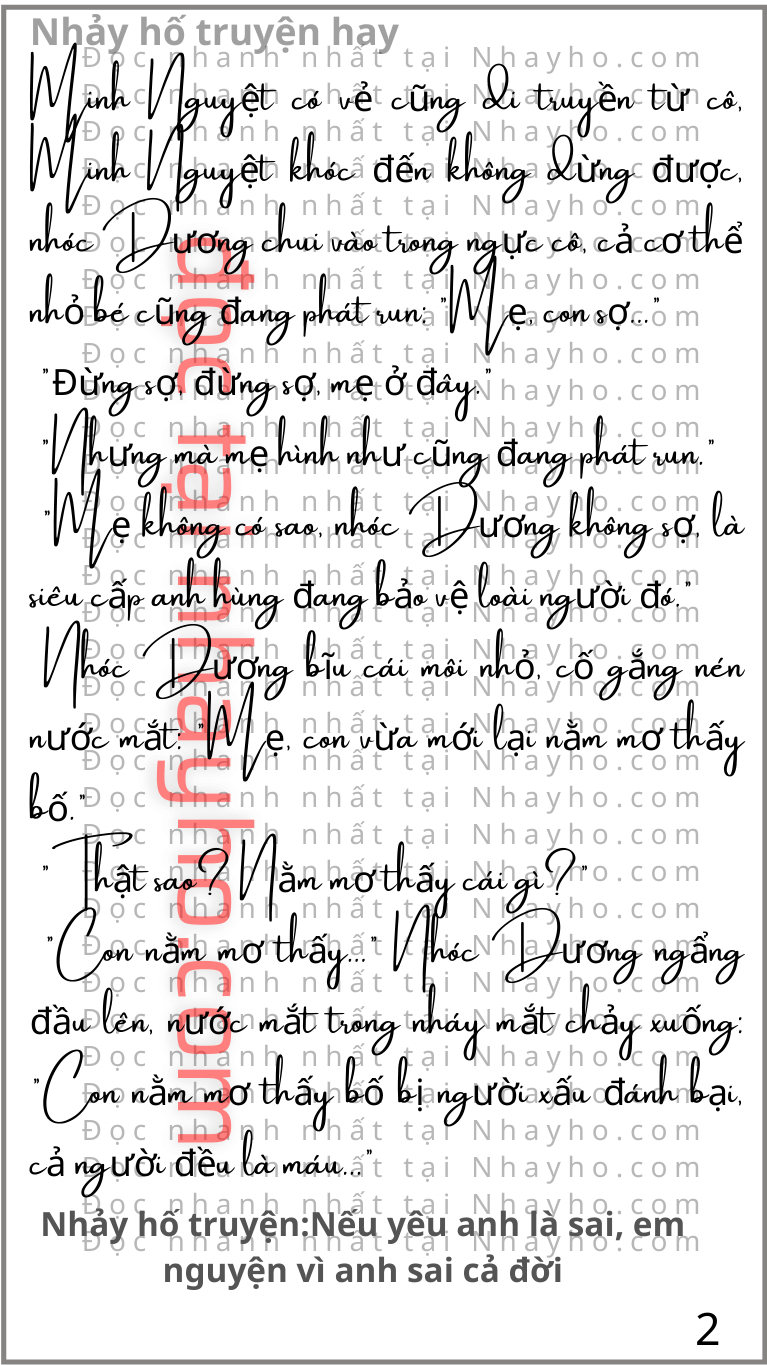 Nhảy hố truyện hay
Minh Nguyệt có vẻ cũng di truyền từ cô,
Minh Nguyệt khóc đến không dừng được,
nhóc Dương chui vào trong ngực cô, cả cơ thể
nhỏ bé cũng đang phát run: "Mẹ, con sợ..."
"Đừng sợ, đừng sợ, mẹ ở đây."
"Nhưng mà mẹ hình như cũng đang phát run."
"Mẹ không có sao, nhóc Dương không sợ, là
siêu cấp anh hùng đang bảo vệ loài người đó."
Nhóc Dương bĩu cái môi nhỏ, cố gắng nén
nước mắt: "Mẹ, con vừa mới lại nằm mơ thấy
bố."
"Thật sao? Nằm mơ thấy cái gì?"
"Con nằm mơ thấy..." Nhóc Dương ngẩng
đầu lên, nước mắt trong nháy mắt chảy xuống:
"Con nằm mơ thấy bố bị người xấu đánh bại,
cả người đều là máu..."
Nhảy hố truyện:Nếu yêu anh là sai, em
nguyện vì anh sai cả đời
2
đọc tại nhayho.com
Đọc nhanh nhất tại Nhayho.com